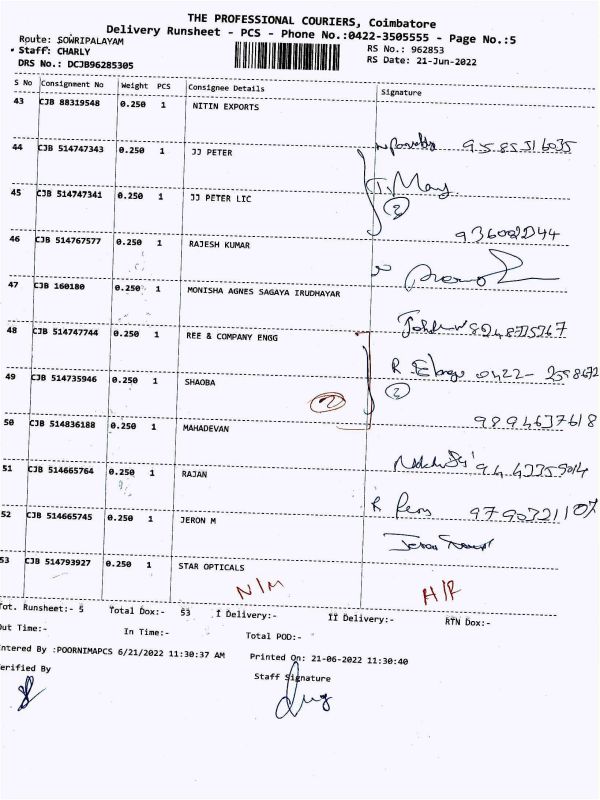 THE PROFESSIONAL COURIERS, Coimbatore
Delivery Runsheet - PCS - Phone No.:0422-3505555 - Page No.:5
Route: SOWRIPALAYAM
RS No.: 962853
Staff: CHARLY
RS Date: 21-Jun-2022
DRS No.: DCJB96285305
S No Consignment No Weight PCS Consignee Details Signature
43 CJB 88319548 0.250 1 NITIN EXPORTS
9585516035
44 CJB 514747343 0.250 1 JJ PETER
T. Mary
45 CJB 514747341 0.250 1 JJ PETER LIC
2
46 CJB 514767577 0.250 1 RAJESH KUMAR
47 CJB 160180 0.250 1 MONISHA AGNES SAGAYA IRUDHAYAR
48 CJB 514747744 0.250 1 REE & COMPANY ENGG
R 0422-
49 CJB 514735946 0.250 1 SHAOBA
2 2
9894637618
50 CJB 514836188 0.250 1 MAHADEVAN
51 CJB 514665764 0.250 1 RAJAN
R
52 CJB 514665745 0.250 1 JERON M
Jeron
53 CJB 514793927 0.250 1 STAR OPTICALS
N/M
Tot. Runsheet:- 5 Total Dox:- 53 I Delivery:- II Delivery:- RTN Dox:-
Out Time:- In Time:- Total POD:-
Entered By :POORNIMAPCS 6/21/2022 11:30:37 AM Printed On: 21-06-2022 11:30:40
Verified By Staff Signature